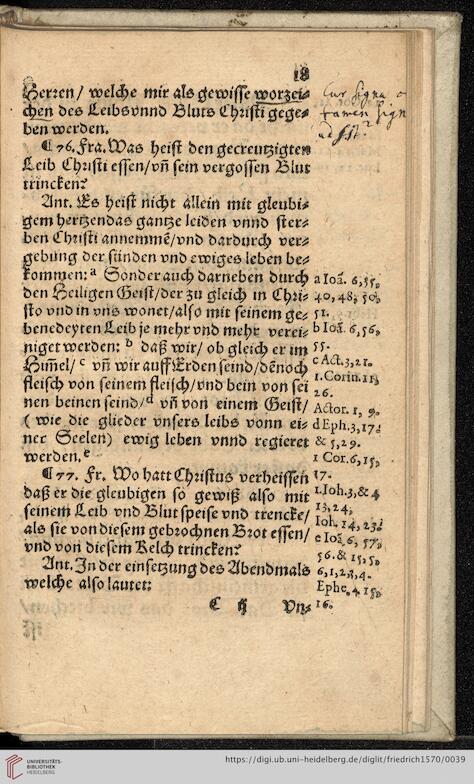 18
Herren/ welche mir als gewisse worzei⸗
chen des Leibs vnnd Bluts Christi gege⸗
ben werden.
¶ 76. Fra. Was heist den gecreutzigten
Leib Christi essen/ vñ sein vergossen Blut
trincken?
Ant. Es heist nicht allein mit gleubi⸗
gem hertzen das gantze leiden vnnd ster⸗
ben Christi annemmē/ vnd dardurch ver⸗
gebung der sünden vnd ewiges leben be⸗
kommen: a Sonder auch darneben durch
den Heiligen Geist/ der zu gleich in Chri⸗
sto vnd in vns wonet/ also mit seinem ge⸗
benedeyten Leib je mehr vnd mehr verei⸗
niget werden: b daß wir/ ob gleich er im
Him̄el/ c vñ wir auff Erden seind/ deñoch
fleisch von seinem fleisch/ vnd bein von sei
nen beinen seind/ d vñ von einem Geist/
( wie die glieder vnsers leibs vonn ei⸗
ner Seelen) ewig leben vnnd regieret
werden. e
¶ 77. Fr. Wo hatt Christus verheissen
daß er die gleubigen so gewiß also mit
seinem Leib vnd Blut speise vnd trencke/
als sie von diesem gebrochnen Brot essen/
vnd von diesem Kelch trincken?
Ant. In der einsetzung des Abendmals
welche also lautet:
C ij Vn⸗
Cur signa
tamen sign
a Ioã. 6, 35.
40, 48, 50,
51.
b Ioã. 6, 56,
55.
c Act. 3, 21.
1. Corin. 11,
26.
Actor. 1, 9.
d Eph. 3, 17.
& 5, 29.
1 Cor. 6, 15,
17.
1. Ioh. 3, & 4
13, 24,
Ioh. 14, 23.
e Ioã. 6, 57,
56. & 15, 5.
6, 1, 2, 3, 4.
Ephe. 4. 15,
16.
UNIVERSITÄTS-
BIBLIOTHEK
HEIDELBERG
https://digi.ub.uni-heidelberg.de/diglit/friedrich1570/0039